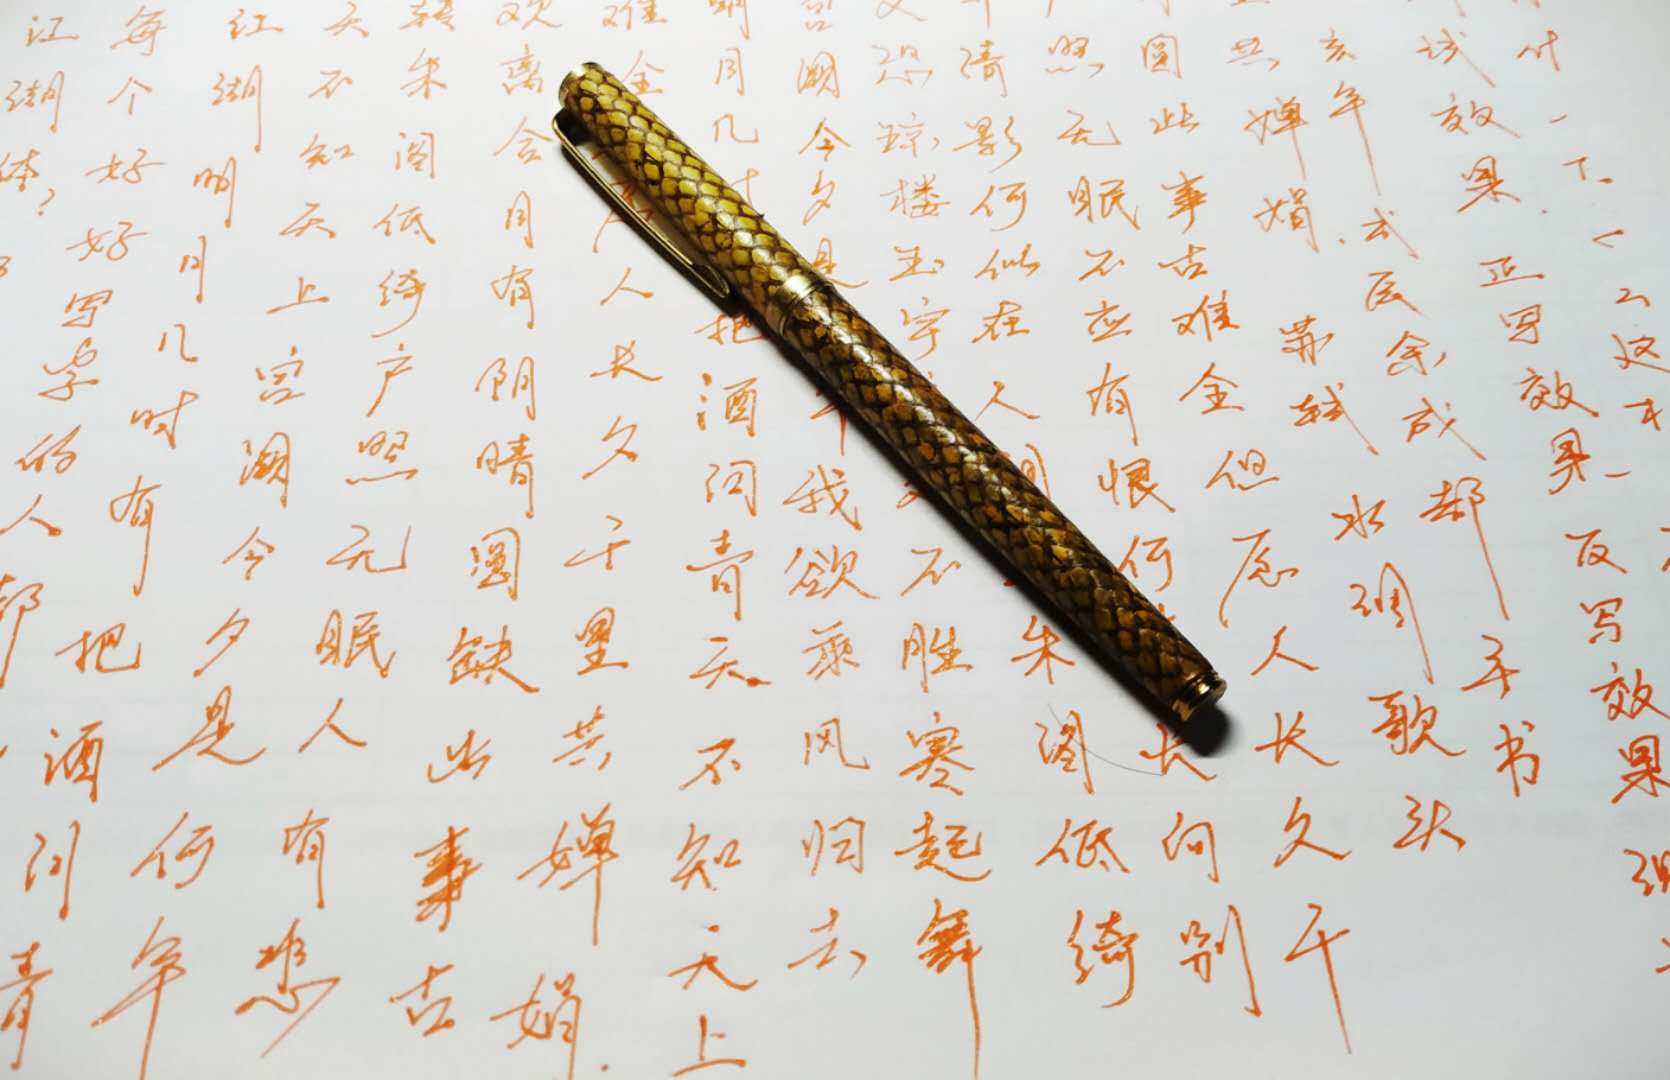 江湖体?
每个好好写字的人都
江湖明月几时有把酒问青
天不知天上宫阙今夕是何年
转朱阁低绮户照无眠人有悲
欢离合月有阴晴圆缺此事古
难全人长久千里共婵娟.
明月几把酒问青天不知天上
宫阙今夕是年我欲乘风归去
又恐琼楼玉宇不胜寒起舞
清影何似在人间朱阁低绮
照无眠不应有恨何长向别
圆此事古难全但愿人长久千
共婵娟.苏轼水调歌头
亥年
试效果.正写效果.反写效果
什一下.